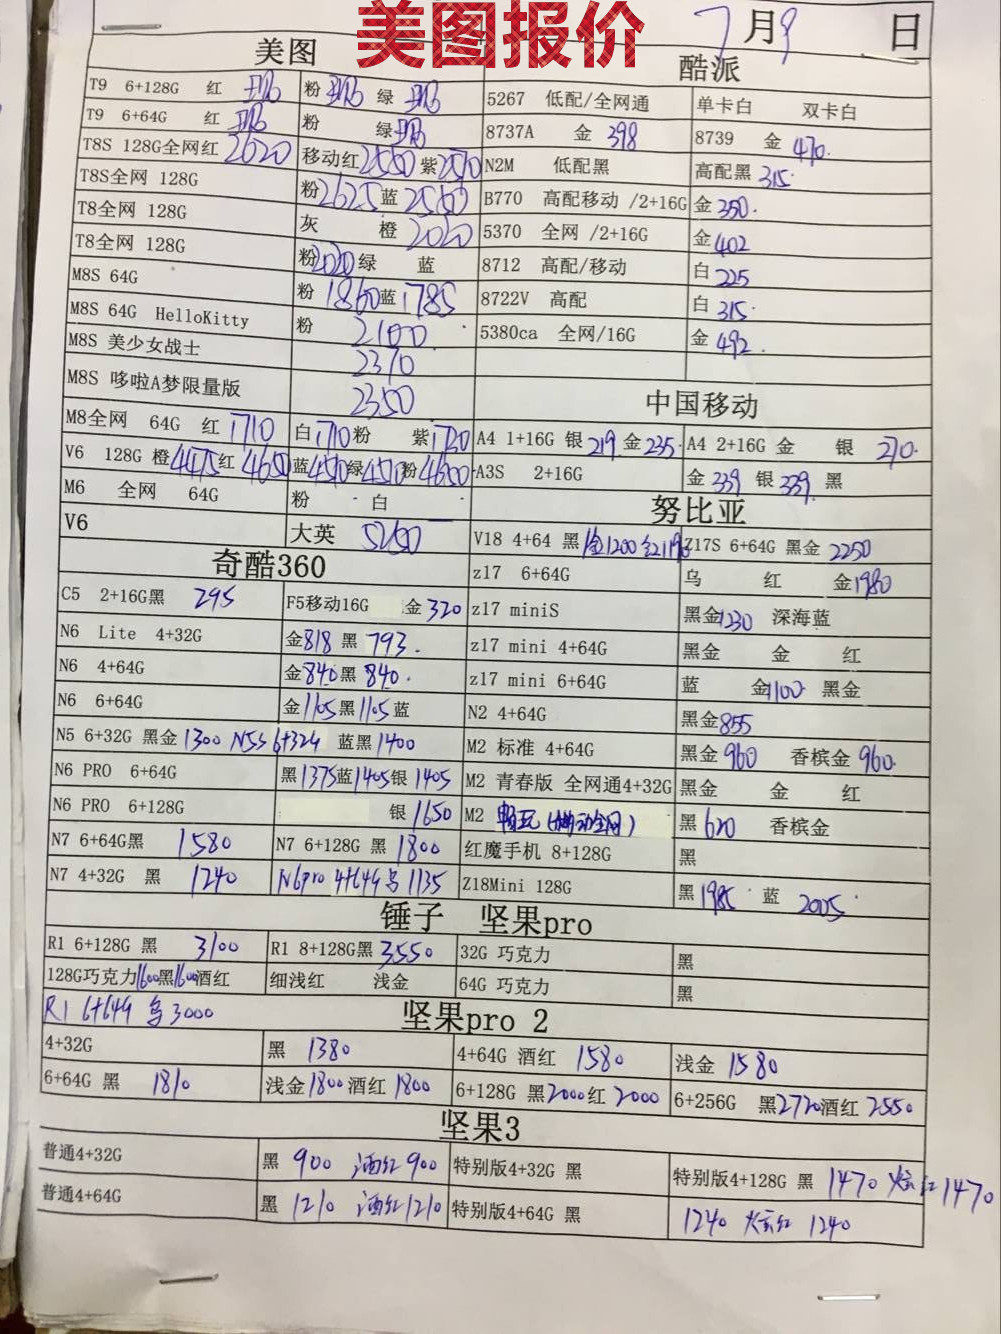 美图报价
7月9日
美图
T9 6+128G 红 现 粉 现 绿 现
T9 6+64G 红 现 粉 绿 现
T8S 128G全网红 2620 移动红 2550 紫 2570
T8S全网 128G 粉 2625 蓝 2550
T8全网 128G 灰 橙 2020
T8全网 128G 粉 2020 绿 蓝
M8S 64G 粉 1860 蓝 1785
M8S 64G HelloKitty 粉 2100
M8S 美少女战士 2370
M8S 哆啦A梦限量版 2350
M8全网 64G 红 1710 白 1710 粉 紫 1720
V6 128G 橙 4475 红 4650 蓝 4570 绿 4570 粉 4600
M6 全网 64G 粉 白
V6 大英
酷派
5267 低配/全网通 单卡白 双卡白
8737A 金 398 8739 金 470.
N2M 低配黑 高配黑 315.
B770 高配移动 /2+16G 金 350.
5370 全网 /2+16G 金 402
8712 高配/移动 白 225
8722V 高配 白 315.
5380ca 全网/16G 金 492.
中国移动
A4 1+16G 银 219 金 235. A4 2+16G 金 银 270.
A3S 2+16G 金 339 银 339. 黑
努比亚
V18 4+64 黑 金1200 红1196 Z17S 6+64G 黑金 2250
z17 6+64G 乌 红 金 1980
z17 miniS 黑金 1230 深海蓝
z17 mini 4+64G 黑金 金 红
z17 mini 6+64G 蓝 金 1100. 黑金
N2 4+64G 黑金 855
M2 标准 4+64G 黑金 960 香槟金 960.
M2 青春版 全网通4+32G 黑金 金 红
M2 畅玩(移动全网) 黑 620 香槟金
红魔手机 8+128G 黑
Z18Mini 128G 黑 1985 蓝 2005.
奇酷360
C5 2+16G黑 295 F5移动16G 金 320
N6 Lite 4+32G 金 818 黑 793.
N6 4+64G 金 840 黑 840.
N6 6+64G 金 1105 黑 1105 蓝
N5 6+32G 黑金 1300 N5S 6+32G 蓝黑 1400
N6 PRO 6+64G 黑 1375 蓝 1405 银 1405
N6 PRO 6+128G 银 1650
N7 6+64G黑 1580 N7 6+128G 黑 1800
N7 4+32G 黑 1240 N6pro 4+64G 乌 1135
锤子 坚果pro
R1 6+128G 黑 3100 R1 8+128G黑 3550 32G 巧克力 黑
128G巧克力 1600 黑 1600 酒红 细浅红 浅金 64G 巧克力 黑
R1 6+64G 乌 3000
坚果pro 2
4+32G 黑 1380 4+64G 酒红 1580 浅金 1580
6+64G 黑 1810 浅金 1800 酒红 1800 6+128G 黑 2000 红 2000 6+256G 黑 2720 酒红 2550
坚果3
普通4+32G 黑 900 酒红 900 特别版4+32G 黑 特别版4+128G 黑 1470 炫红 1470
普通4+64G 黑 1210 酒红 1210 特别版4+64G 黑 1240 炫红 1240